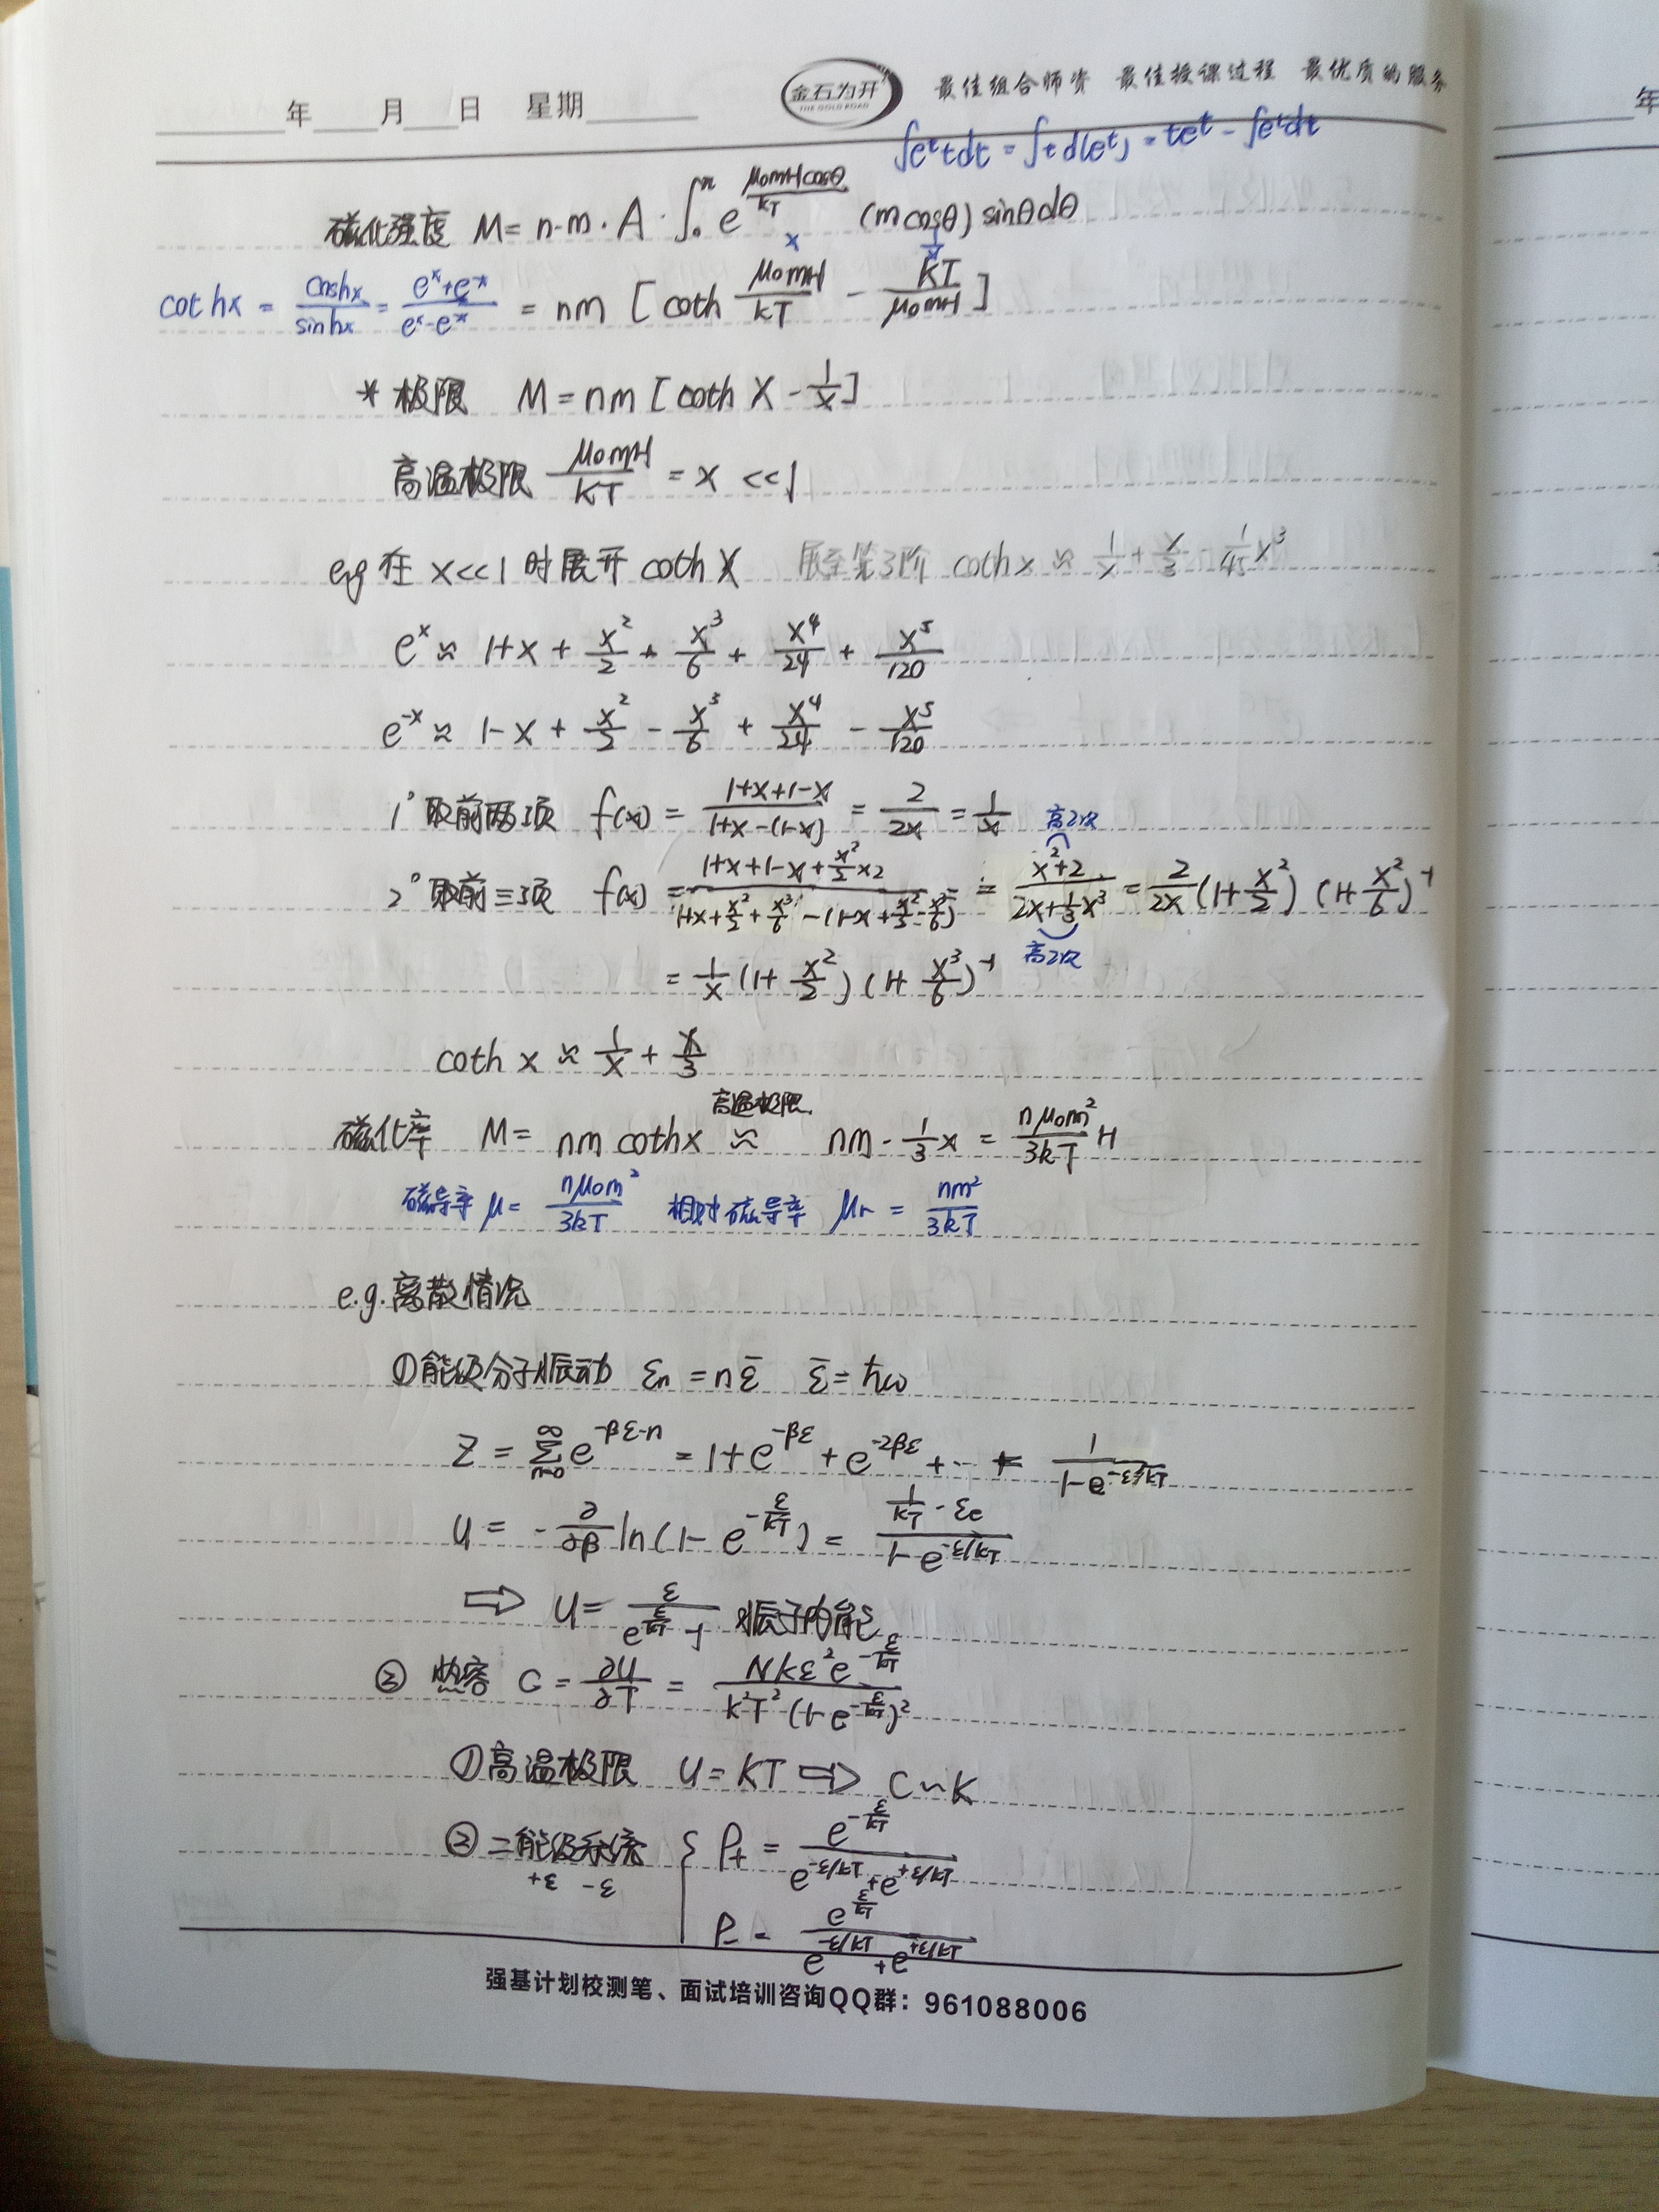 年 月 日 星期 金石为开 THE GOLD ROAD 最佳组合师资 最佳授课过程 最优质的服务
∫eᵗtdt = ∫t d(eᵗ) = teᵗ - ∫eᵗdt
磁化强度 M = n·m·A·∫₀^π e^(μ₀mHcosθ/kT) (mcosθ) sinθdθ
x 1/x
cothx = coshx/sinhx = (eˣ+e⁻ˣ)/(eˣ-e⁻ˣ) = nm [coth μ₀mH/kT - kT/μ₀mH]
* 极限 M = nm [coth X - 1/x]
高温极限 μ₀mH/kT = x <<1
eg 在 x<<1 时展开 coth X 展至第3阶 coth x ≈ 1/x + x/3 - 1/45 x³
eˣ ≈ 1+x + x²/2 + x³/6 + x⁴/24 + x⁵/120
e⁻ˣ ≈ 1-x + x²/2 - x³/6 + x⁴/24 - x⁵/120
1° 取前两项 f(x) = (1+x+1-x)/(1+x-(1-x)) = 2/2x = 1/x
高次
2° 取前三项 f(x) = (1+x+1-x+x²/2×2)/(1+x+x²/2+x³/6-(1-x+x²/2-x³/6)) = (x²+2)/(2x+1/3x³) = 2/2x (1+x²/2) (1+x²/6)⁻¹
高次
= 1/x (1+x²/2) (1+x³/6)⁻¹
coth x ≈ 1/x + x/3
高温极限.
磁化率 M = nm cothx ≈ nm·1/3x = nμ₀m²/3kT H
磁导率 μ = nμ₀m²/3kT 相对磁导率 μr = nm²/3kT
e.g. 离散情况
①能级分子振动 εn = nε̄ ε̄ = ħω
Z = Σ(n=0→∞) e^(-βε·n) = 1+e^(-βε) + e^(-2βε) + ··· = 1/(1-e^(-ε/kT))
U = -∂/∂β ln(1-e^(-ε/kT)) = (1/kT·εe)/(1-e^(-ε/kT))
⇨ U = ε/(e^(ε/kT)-1) 振子内能
② 热容 C = ∂U/∂T = Nkε²e^(-ε/kT)/(k²T²(1-e^(-ε/kT))²)
①高温极限 U = KT ⇨ C~K
②二能级系统 { P₊ = e^(-ε/kT)/(e^(-ε/kT)+e^(+ε/kT))
+ε -ε
P₋ = e^(ε/kT)/(e^(-ε/kT)+e^(+ε/kT))
强基计划校测笔、面试培训咨询QQ群：961088006
年